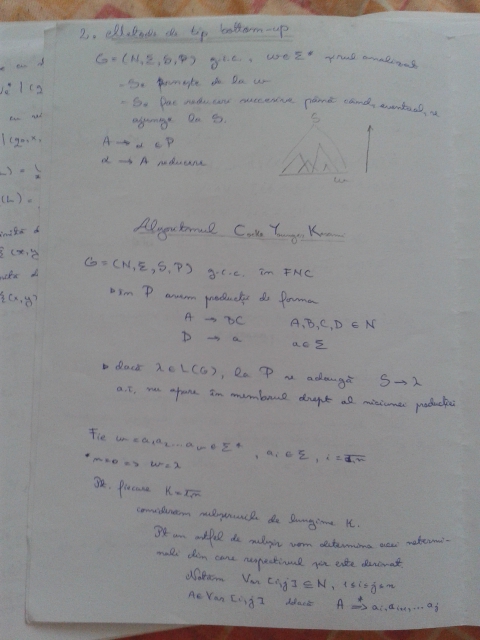 2. Metode de tip bottom-up
G = (N, Σ, S, P) g.i.c. , w ∈ Σ* șirul analizat
- Se pornește de la w
- Se fac reduceri succesive până când, eventual, se
ajunge la S.
A → α ∈ P
α → A reducere
S
w
Algoritmul Cocke Younger Kasami
G = (N, Σ, S, P) g.i.c. în FNC
în P avem producții de forma
A → BC A, B, C, D ∈ N
D → a a ∈ Σ
dacă λ ∈ L(G), la P se adaugă S → λ
a.î. nu apare în membrul drept al niciunei producții
Fie w = a₁a₂...aₙ ∈ Σ* , aᵢ ∈ Σ, i = 1,n
* n = 0 => w = λ
Pt. fiecare K = 1,n
considerăm subșirurile de lungime K.
Pt un astfel de subșir vom determina acei netermi-
nali din care respectivul șir este derivat
Notăm Var [i,j] ⊆ N, 1 ≤ i ≤ j ≤ n
A ∈ Var [i,j] dacă A =*> aᵢ, aᵢ₊₁, ... aⱼ